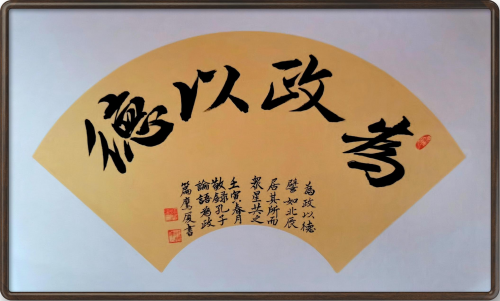 為政以德
為政以德
譬如北辰
居其所而
衆星共之
壬寅春月
敬錄孔子
論語為政
篇鹰厦書